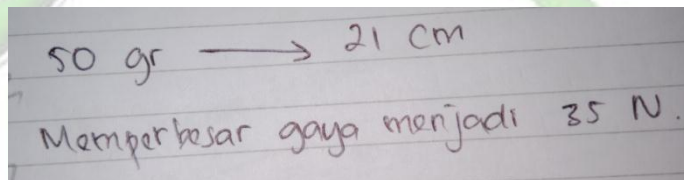 50 gr → 21 cm
Memperbesar gaya menjadi 35 N.